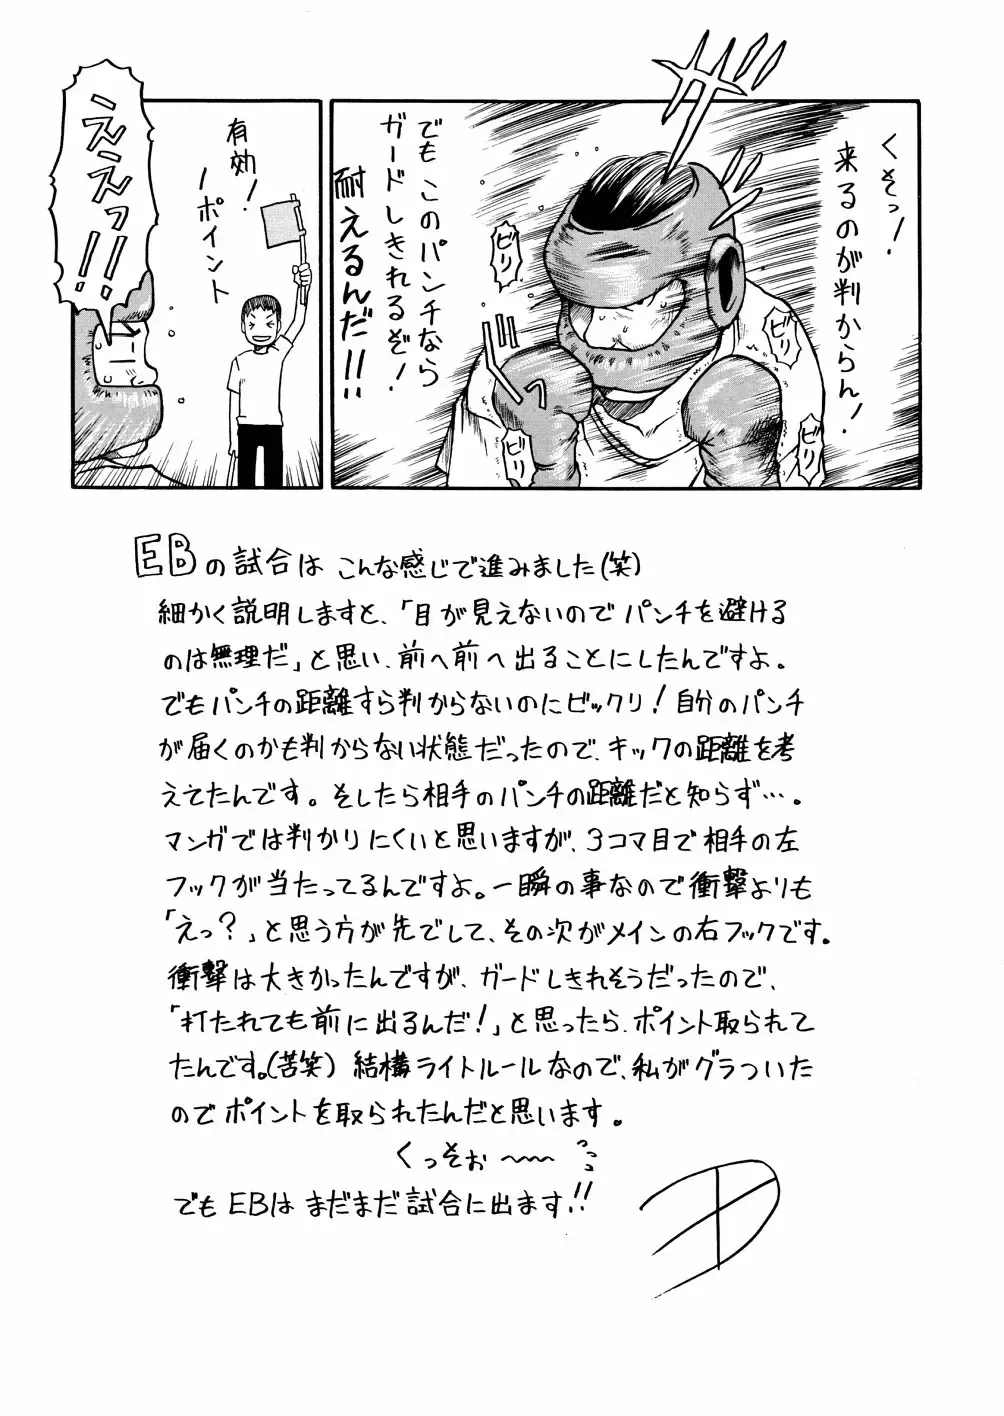 くそっ!
来るのが判からん!
ガッ
ビリ
ビリ
ビリ
でもこのパンチなら
ガードしきれるぞ!
耐えるんだ!!
有効!
1ポイント
ええっ!!
EBの試合は こんな感じで進みました(笑)
細かく説明しますと、「目が見えないのでパンチを避ける
のは無理だ」と思い、前へ前へ出ることにしたんですよ。
でもパンチの距離すら判からないのにビックリ!自分のパンチ
が届くのかも判からない状態だったので、キックの距離を考
えてたんです。そしたら相手のパンチの距離だと知らず…。
マンガでは判かりにくいと思いますが、3コマ目で相手の左
フックが当たってるんですよ。一瞬の事なので衝撃よりも
「えっ?」と思う方が先でして、その次がメインの右フックです。
衝撃は大きかったんですが、ガードしきれそうだったので、
「打たれても前に出るんだ!」と思ったら、ポイント取られて
たんです。(苦笑) 結構ライトルールなので、私がグラついた
のでポイントを取られたんだと思います。
くっそぉ〜〜っっっ
でもEBはまだまだ試合に出ます!!